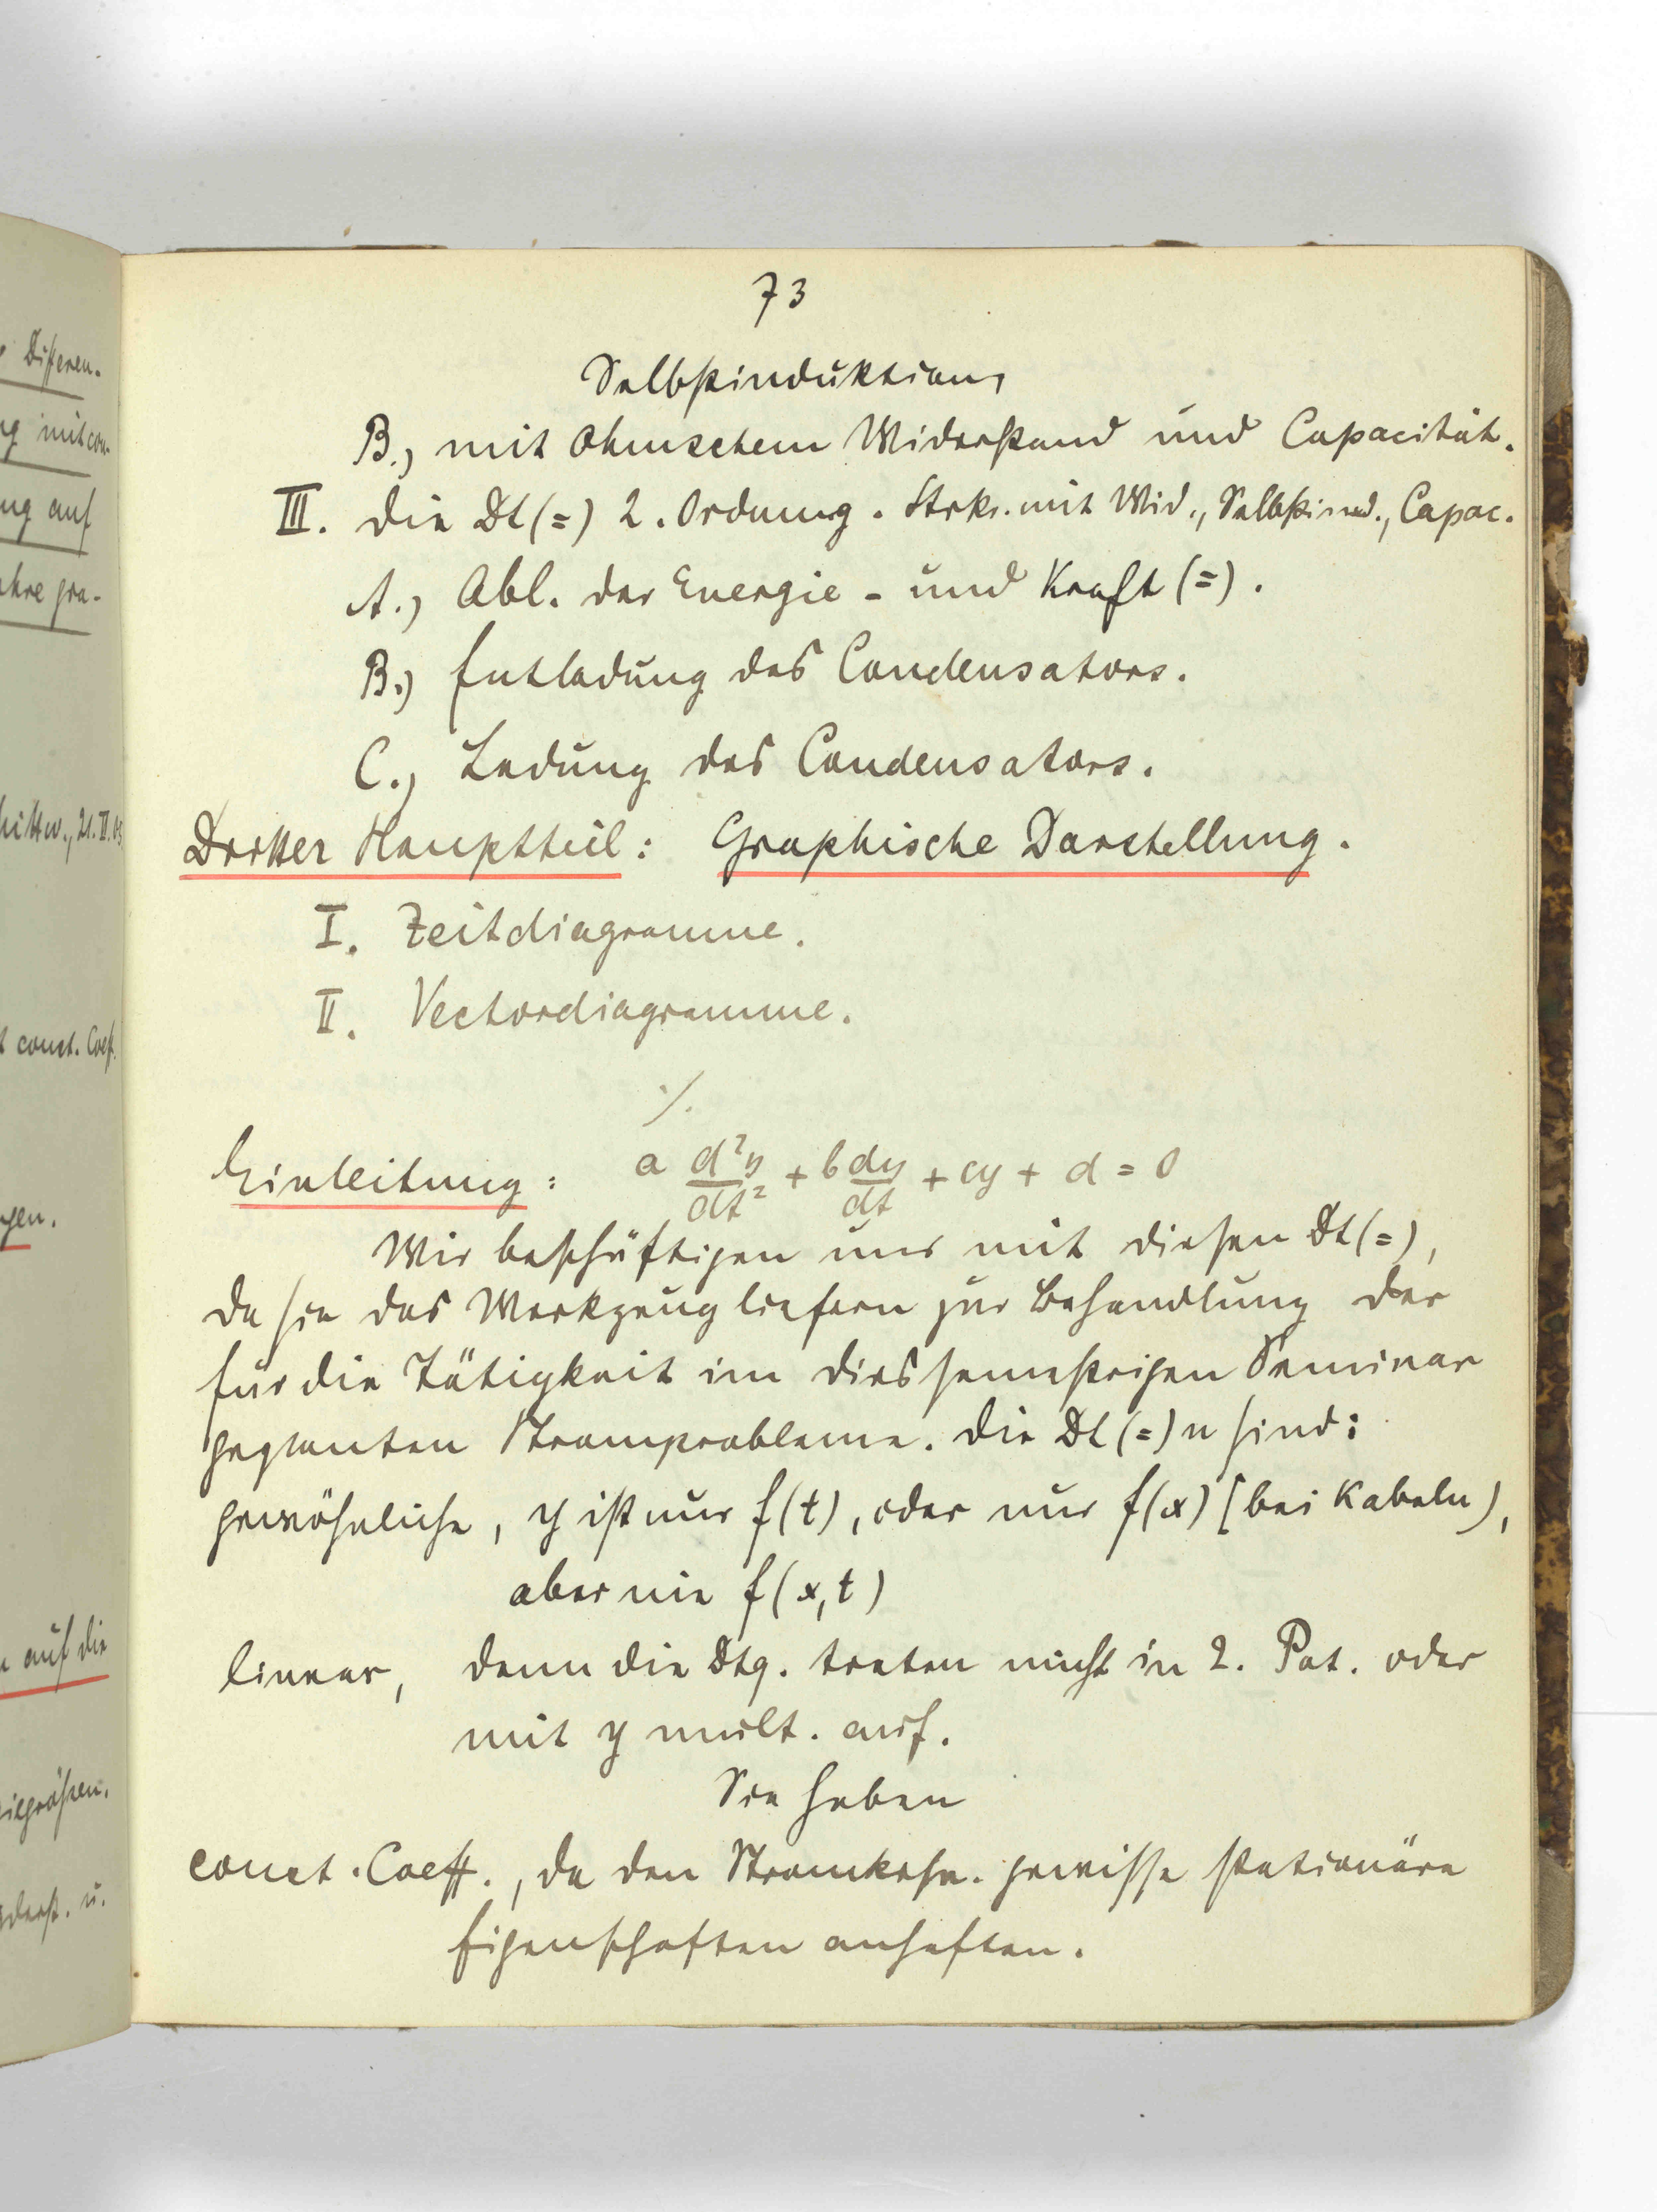 73
Selbstinduktion,
B.) mit Ohmschem Widerstand und Capacität.
III. Die Dt(=) 2. Ordnung. Strkr. mit Wid., Selbstind., Capac.
A.) Abl. der Energie- und Kraft(=).
B.) Entladung des Condensators.
C.) Ladung des Condensators.
Dritter Hauptteil: Graphische Darstellung.
I. Zeitdiagramme.
II. Vectordiagramme.
./.
Einleitung: a d²y/dt² + b dy/dt + cy + d = 0
Wir beschäftigen uns mit diesen Dt(=),
da sie das Werkzeug liefern zur Behandlung der
für die Tätigkeit im diessemestrigen Seminar
geplanten Stromprobleme. Die Dt(=)n sind:
gewöhnliche, y ist nur f(t), oder nur f(x) (bei Kabeln),
aber nie f(x,t)
linear, denn die Dtq. treten nicht in 2. Pot. oder
mit y mult. auf.
Sie haben
const. Coeff., da den Stromkrsn. gewisse stationäre
Eigenschaften anhaften.
Differen-
mit con-
ung auf
ihre gra-
Mittw., 21.
const. Coeff.
gen.
auf die
u.